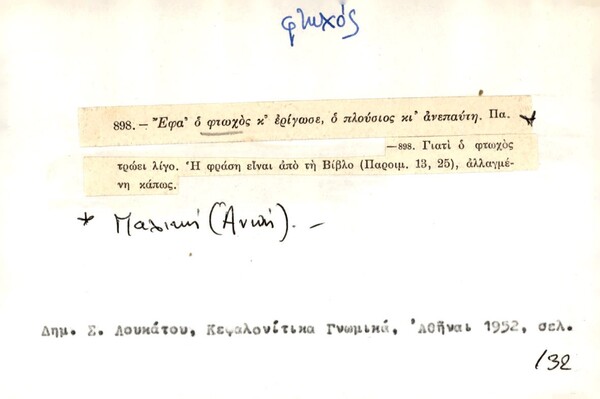 φτωχός
898.— Ἔφα' ὁ φτωχὸς κ' ἐρίγωσε, ὁ πλούσιος κι' ἀνεπαύτη. Πα. *
—898. Γιατὶ ὁ φτωχὸς
τρώει λίγο. Ἡ φράση εἶναι ἀπὸ τὴ Βίβλο (Παροιμ. 13, 25), ἀλλαγμέ-
νη κάπως.
* Παλικὴ (Ἀνωή). –
Δημ. Σ. Λουκάτου, Κεφαλονίτικα Γνωμικά, Ἀθῆναι 1952, σελ.
132